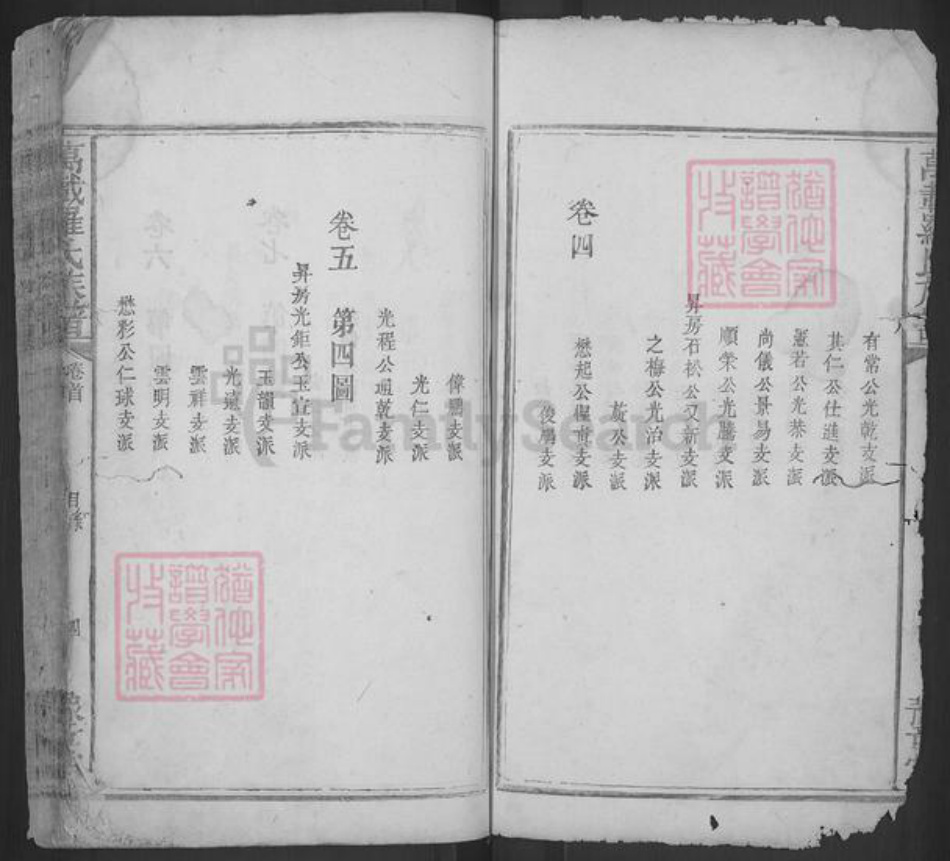 有常公光乾支派
其仁公仕進支派
憲若公光恭支派
尚儀公景易支派
順榮公光騰支派
昇房石松公又新支派
之梅公光治支派
公支派
懋起公偉貴支派
俊鵬支派
卷四
偉鵬支派
光仁支派
光程公道乾支派
卷五 第四圖
昇房光鉅公玉宣支派
玉韻支派
光遠支派
雲祥支派
雲明支派
懋彩公仁球支派
萬載羅氏族譜
卷首
目錄
四
FamilySearch